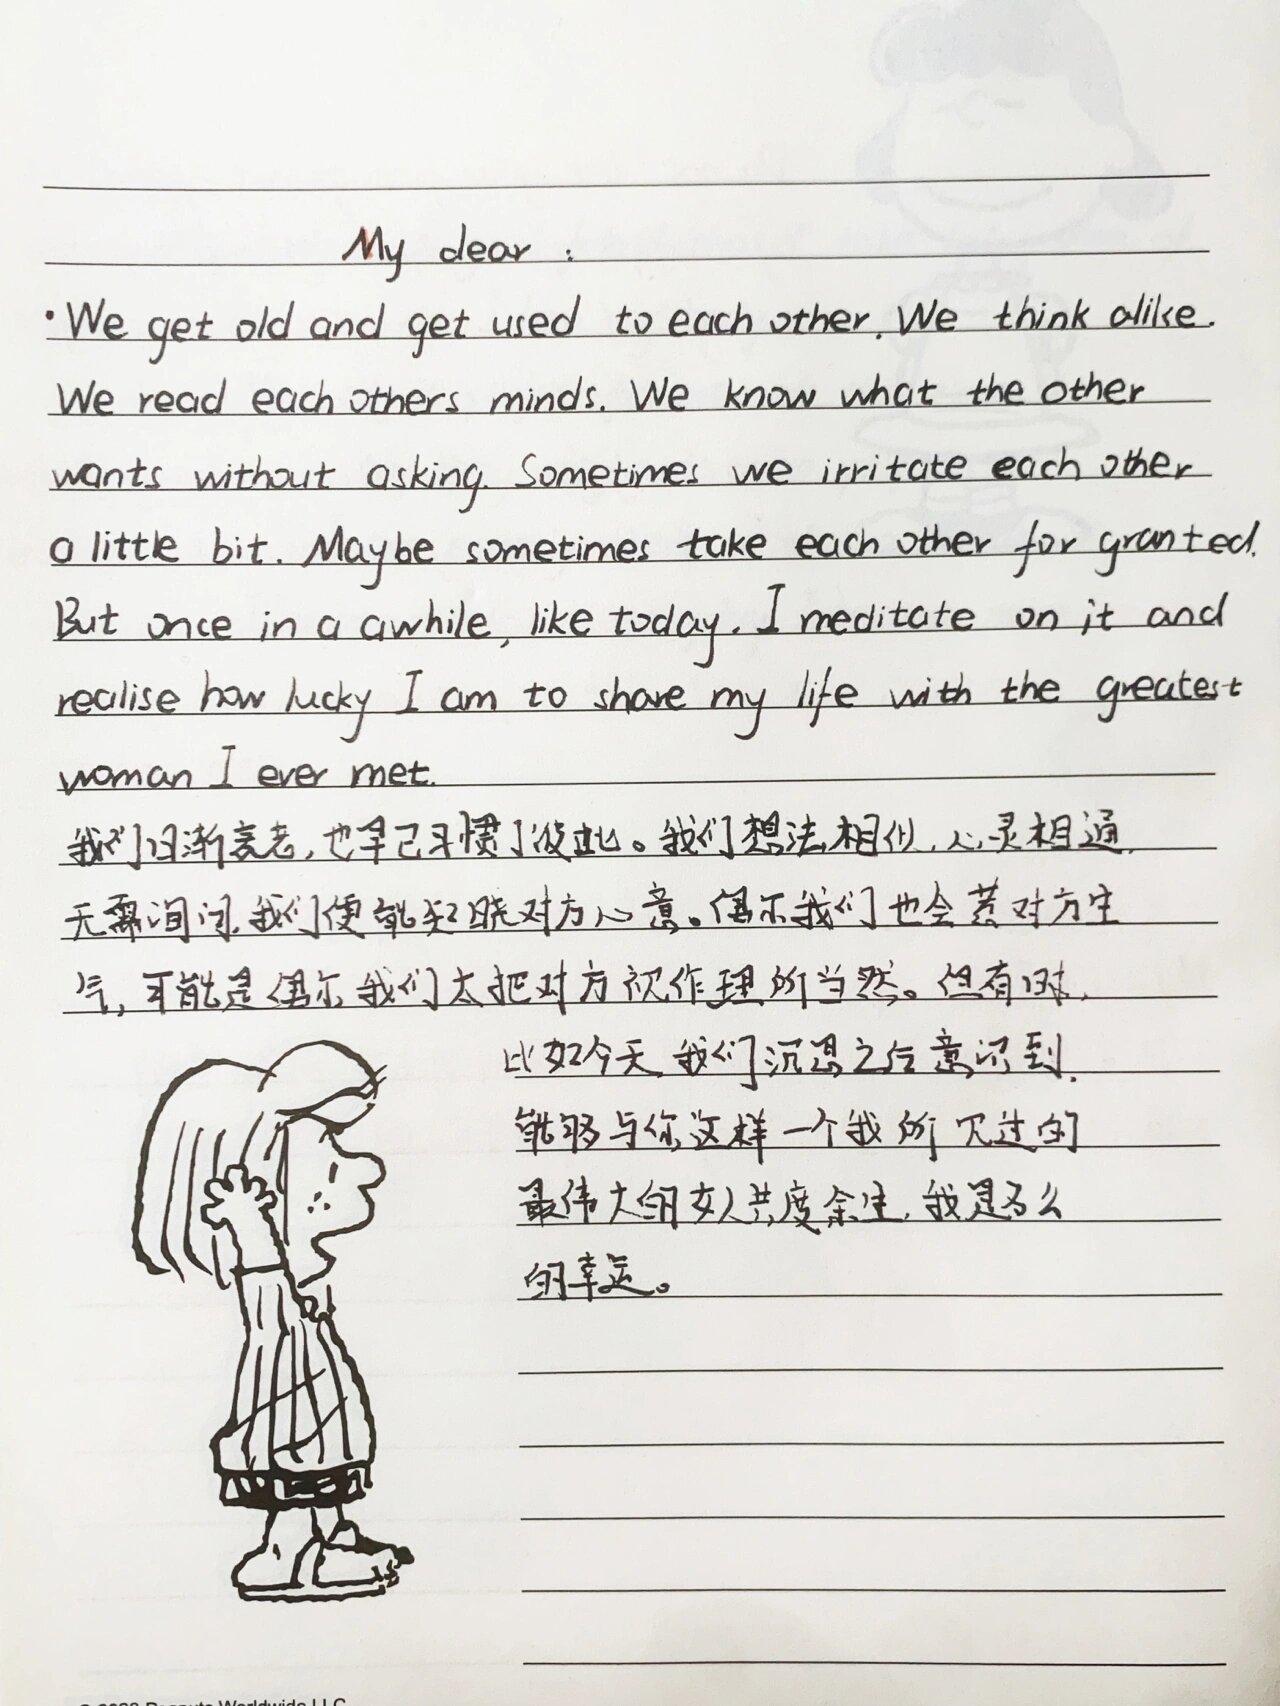 My dear :
·We get old and get used to each other. We think alike.
We read each others minds. We know what the other
wants without asking. Sometimes we irritate each other
a little bit. Maybe sometimes take each other for granted.
But once in a awhile, like today. I meditate on it and
realise how lucky I am to share my life with the greatest
woman I ever met.
我们日渐衰老,也早已习惯了彼此。我们想法相似,心灵相通,
无需询问,我们便能知晓对方心意。偶尔我们也会惹对方生
气,可能是偶尔我们太把对方视作理所当然。但有时,
比如今天,我们沉思之后意识到,
能够与你这样一个我所见过的
最伟大的女人共度余生,我是多么
的幸运。
Peanuts Worldwide LLC